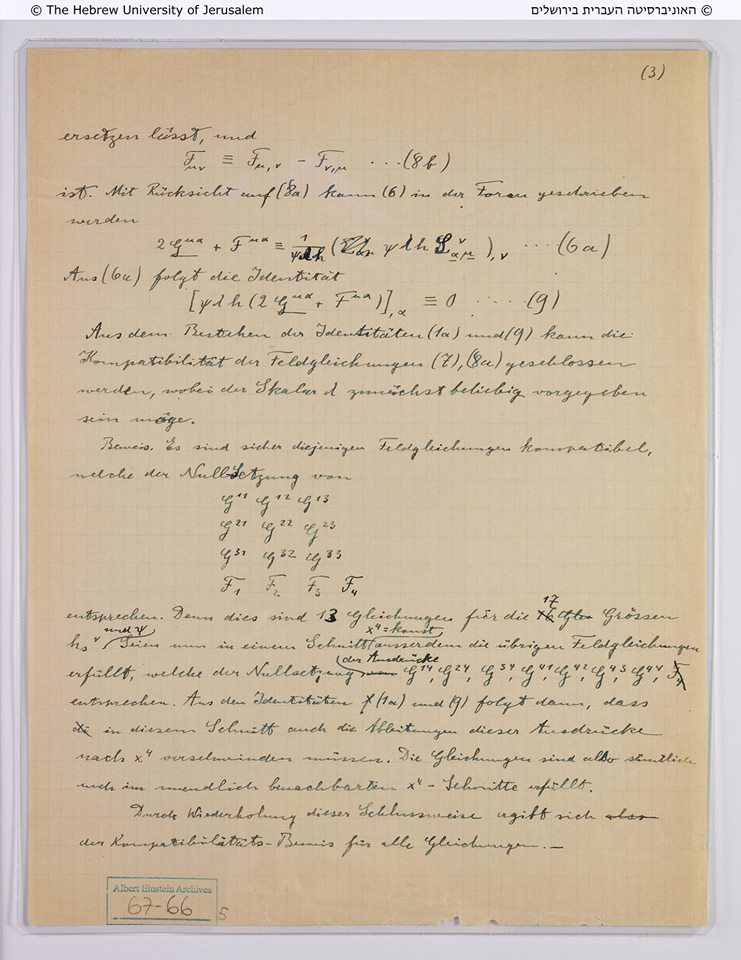 © The Hebrew University of Jerusalem
© האוניברסיטה העברית בירושלים
(3)
ersetzen lässt, und
F_μν ≡ F_μ,ν − F_ν,μ ... (8b)
ist. Mit Rücksicht auf (8a) kann (6) in der Form geschrieben
werden
2 G^μα + F^μα ≡ 1/ψλh ( ψ λ h ),ν ... (6a)
Aus (6a) folgt die Identität
[ψ λ h (2 G^μα + F^μα)],α ≡ 0 .... (9)
Aus dem Bestehen der Identitäten (1a) und (9) kann die
Kompatibilität der Feldgleichungen (7), (8a) geschlossen
werden, wobei der Skalar λ zunächst beliebig vorgegeben
sein möge.
Beweis. Es sind sicher diejenigen Feldgleichungen kompatibel,
welche der Nullsetzung von
G^11 G^12 G^13
G^21 G^22 G^23
G^31 G^32 G^33
F_1 F_2 F_3 F_4
entsprechen. Denn dies sind 13 Gleichungen für die 17 Grössen
h_s^ν und ψ. Seien nun in einem Schnitt x^4 = konst ausserdem die übrigen Feldgleichungen
erfüllt, welche der Nullsetzung der Ausdrücke G^14 G^24, G^34, G^41, G^42, G^43, G^44, F_4
entsprechen. Aus den Identitäten (1a) und (9) folgt dann, dass
in diesem Schnitt auch die Ableitungen dieser Ausdrücke
nach x^4 verschwinden müssen. Die Gleichungen sind also sämtlich
auch im unendlich benachbarten x^4-Schnitte erfüllt.
Durch Wiederholung dieser Schlussweise ergibt sich also
der Kompatibilitäts-Beweis für alle Gleichungen. —
Albert Einstein Archives
67-66
5